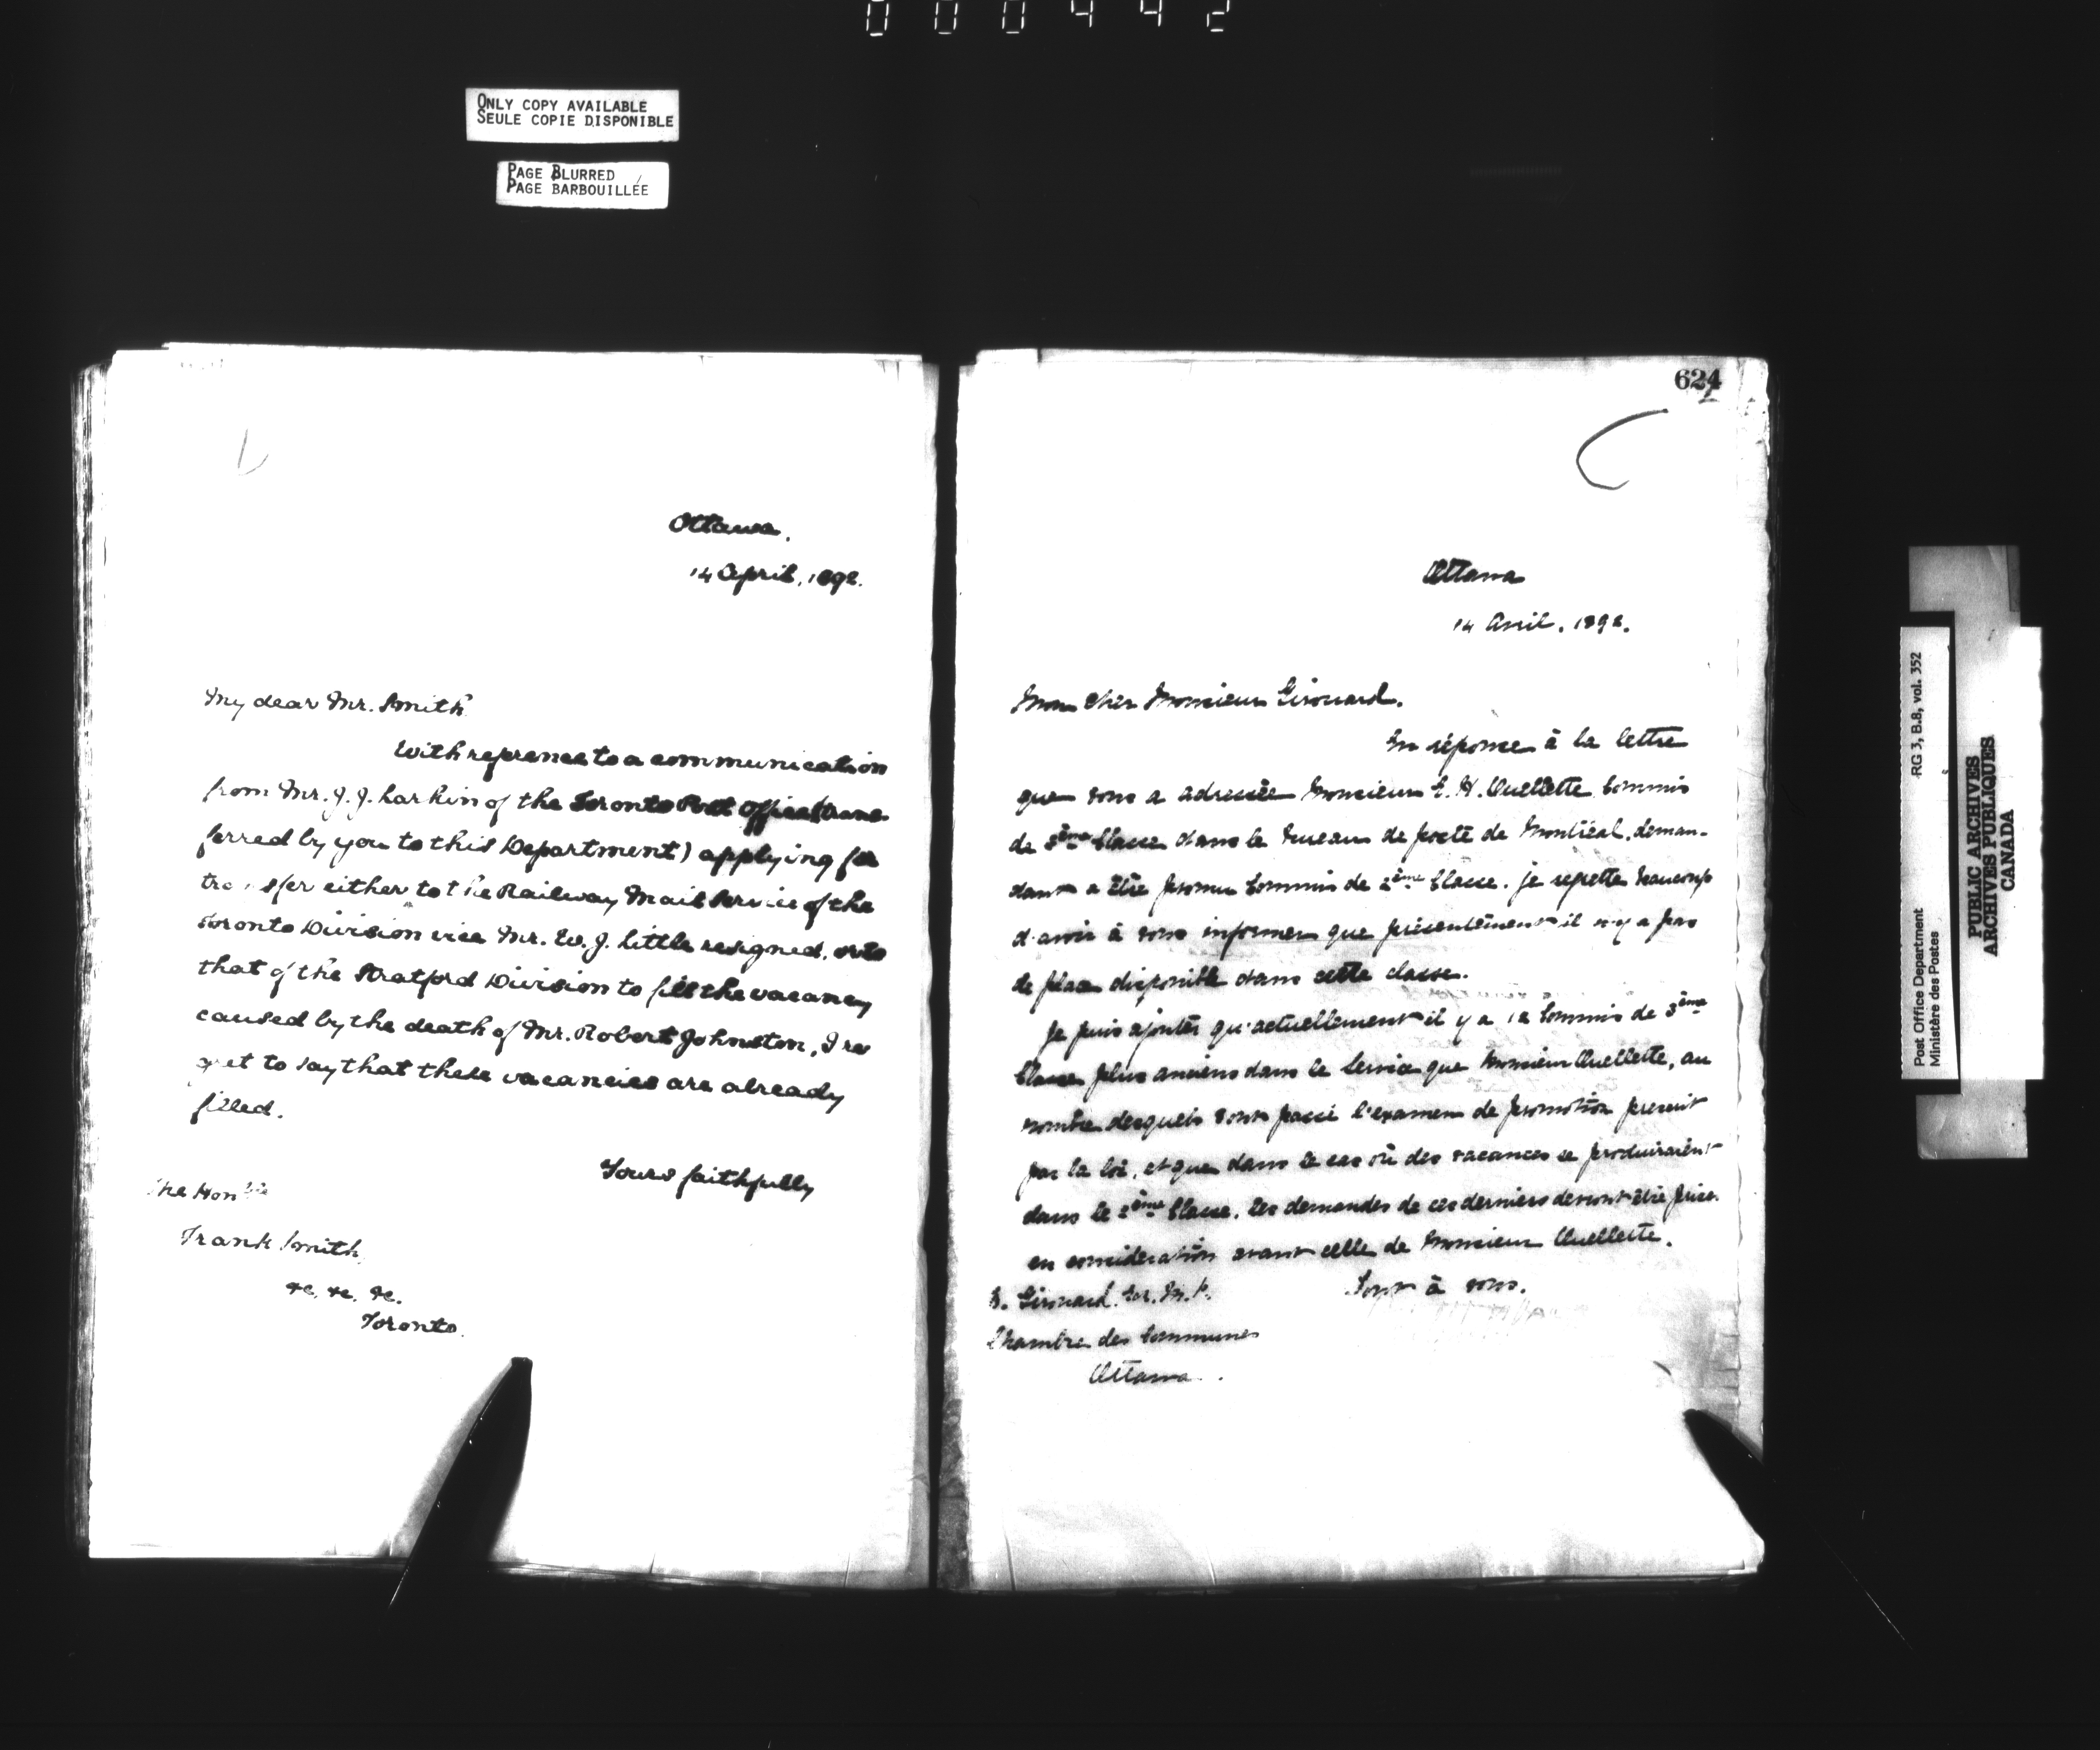 000442
ONLY COPY AVAILABLE
SEULE COPIE DISPONIBLE
PAGE BLURRED
PAGE BARBOUILLÉE
Ottawa.
14 April, 1892.
My dear Mr. Smith
With reference to a communication
from Mr. J. J. Larkin of the Toronto Post Office (trans
ferred by you to this Department) applying for
transfer either to the Railway Mail Service of the
Toronto Division vice Mr. W. J. Little resigned, or to
that of the Stratford Division to fill the vacancy
caused by the death of Mr. Robert Johnston, I re
gret to say that these vacancies are already
filled.
Yours faithfully
The Honble
Frank Smith
&c. &c. &c.
Toronto.
624
Ottawa
14 Avril, 1892.
Mon cher Monsieur Girouard.
En réponse à la lettre
que vous a adressée Monsieur E. H. Ouellette Commis
de 3ème Classe dans le bureau de poste de Montréal, deman-
dant a être promu Commis de 2ème Classe. je regrette beaucoup
d'avoir à vous informer que présentement il n'y a pas
de place disponible dans cette classe.
Je puis ajouter qu'actuellement il y a 12 Commis de 3ème
Classe plus anciens dans le Service que Monsieur Ouellette, au
nombre desquels ont passé l'examen de promotion prescrit
par la loi, et que dans le cas où des vacances se produiraient
dans le 2ème Classe. les demandes de ces derniers devront être prises
en considération avant celle de Monsieur Ouellette.
Tout à vous.
D. Girouard. Ecr. M.P.
Chambre des Communes
Ottawa.
Post Office Department RG 3, B.8, vol. 352
Ministère des Postes
PUBLIC ARCHIVES
ARCHIVES PUBLIQUES
CANADA